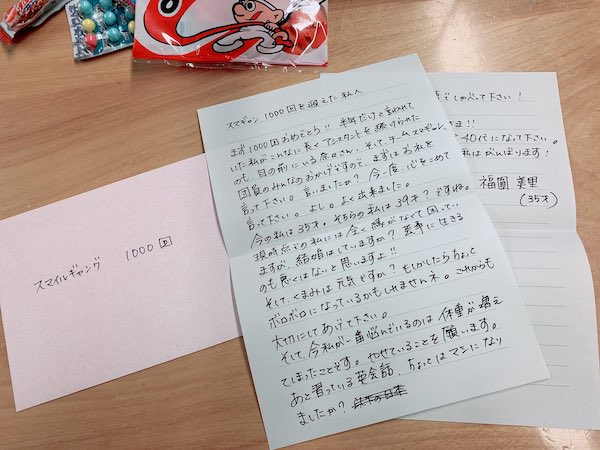 スマイルギャング 1000回
スマギャン 1000回を迎えた私へ
まず1000回おめでとう!! 半年だけと言われて
いた私がこんなに長くアシスタントを続けられた
のも、目の前にいる奈々さん、そして、チームスマギャン、
団員のみんなのおかげですので、まずはお礼を
言って下さい。言いましたか？ 今一度、心をこめて
言って下さい。よし。よく出来ました。
今の私は35才。そちらの私は39才？ですね。
現時点での私には全く縁がなくて困ってい
ますが、結婚はしていますか？ 芸事に生きる
のも悪くはないと思いますよ!!
そして、くまみは元気ですか？ もしかしたらちょっと
ボロボロになっているかもしれませんネ。これからも
大切にしてあげて下さい。
そして、今私が一番悩んでいるのは 体重が増え
てしまったことです。やせていることを願います。
あと習っている英会話、ちょっとはマシになり
ましたか？
でしゃべって下さい！
さま!!
40代になって下さい。
私はがんばります！
福圓 美里
(35才)